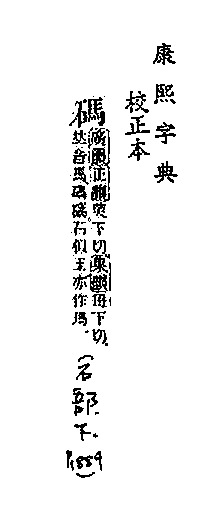 康熙字典
校正本
碼
廣韻正韻莫下切集韻母下切
𠀤音馬碼碯石似玉亦作瑪
（石部下．P.1559）